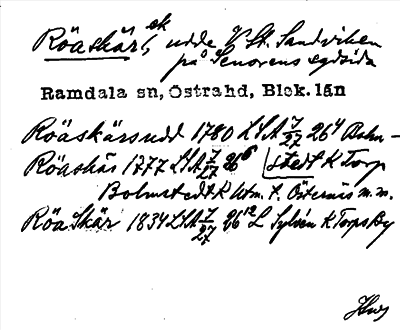 Röaskär, ek udde V St. Sandviken
på Senorens sydsida
Ramdala sn, Östrahd, Blek. län
Röaskärsudd 1780 LSA J/27 26⁴ Bohm-
Röaskär 1777 LSA J/27 26⁶ stedt K Torp
Bolmstedt K Utm. t. Östernäs m.m.
Röa Skär 1834 LSA J/27 26¹² L Sylvén K Torps By